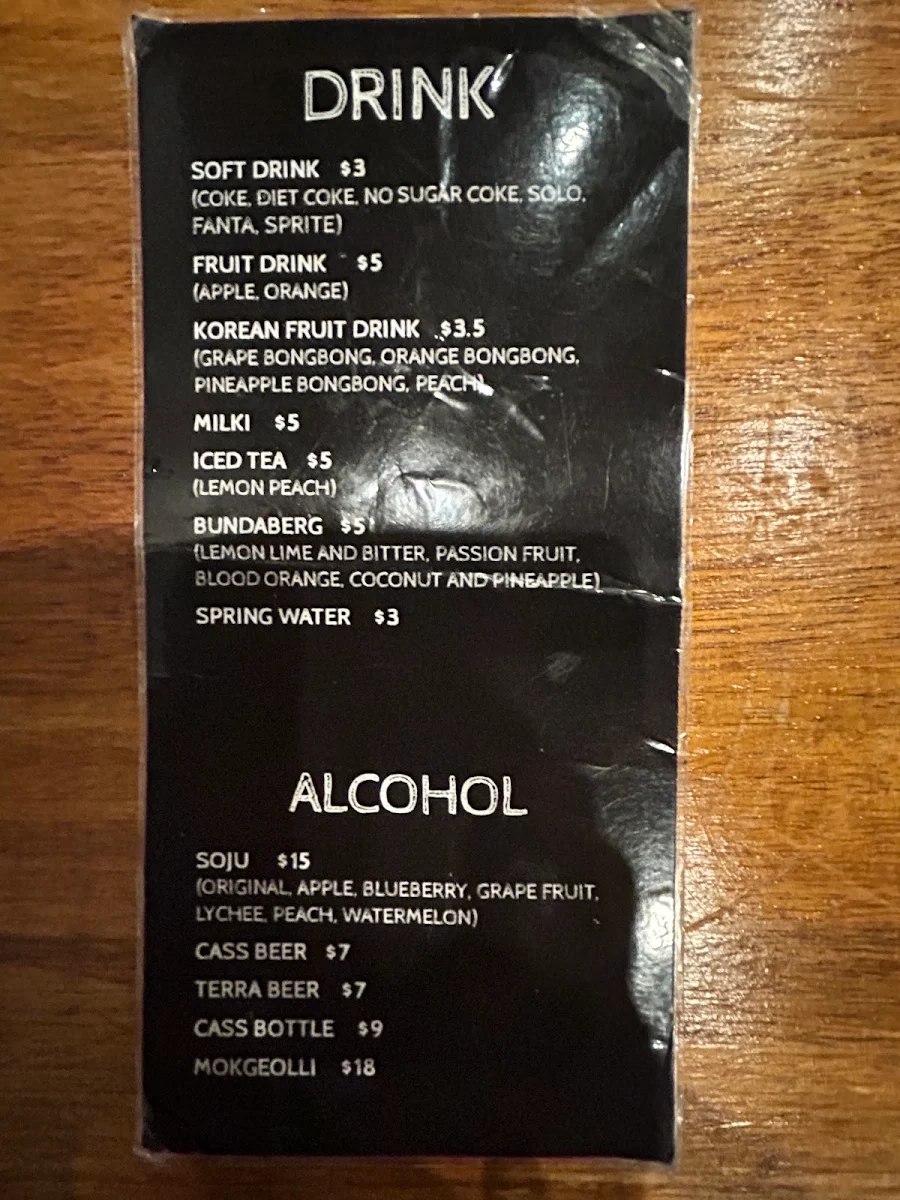 DRINK
SOFT DRINK $3
(COKE, DIET COKE, NO SUGAR COKE, SOLO,
FANTA, SPRITE)
FRUIT DRINK $5
(APPLE, ORANGE)
KOREAN FRUIT DRINK $3.5
(GRAPE BONGBONG, ORANGE BONGBONG,
PINEAPPLE BONGBONG, PEACH)
MILKI $5
ICED TEA $5
(LEMON PEACH)
BUNDABERG $5
(LEMON LIME AND BITTER, PASSION FRUIT,
BLOOD ORANGE, COCONUT AND PINEAPPLE)
SPRING WATER $3
ALCOHOL
SOJU $15
(ORIGINAL, APPLE, BLUEBERRY, GRAPE FRUIT,
LYCHEE, PEACH, WATERMELON)
CASS BEER $7
TERRA BEER $7
CASS BOTTLE $9
MOKGEOLLI $18